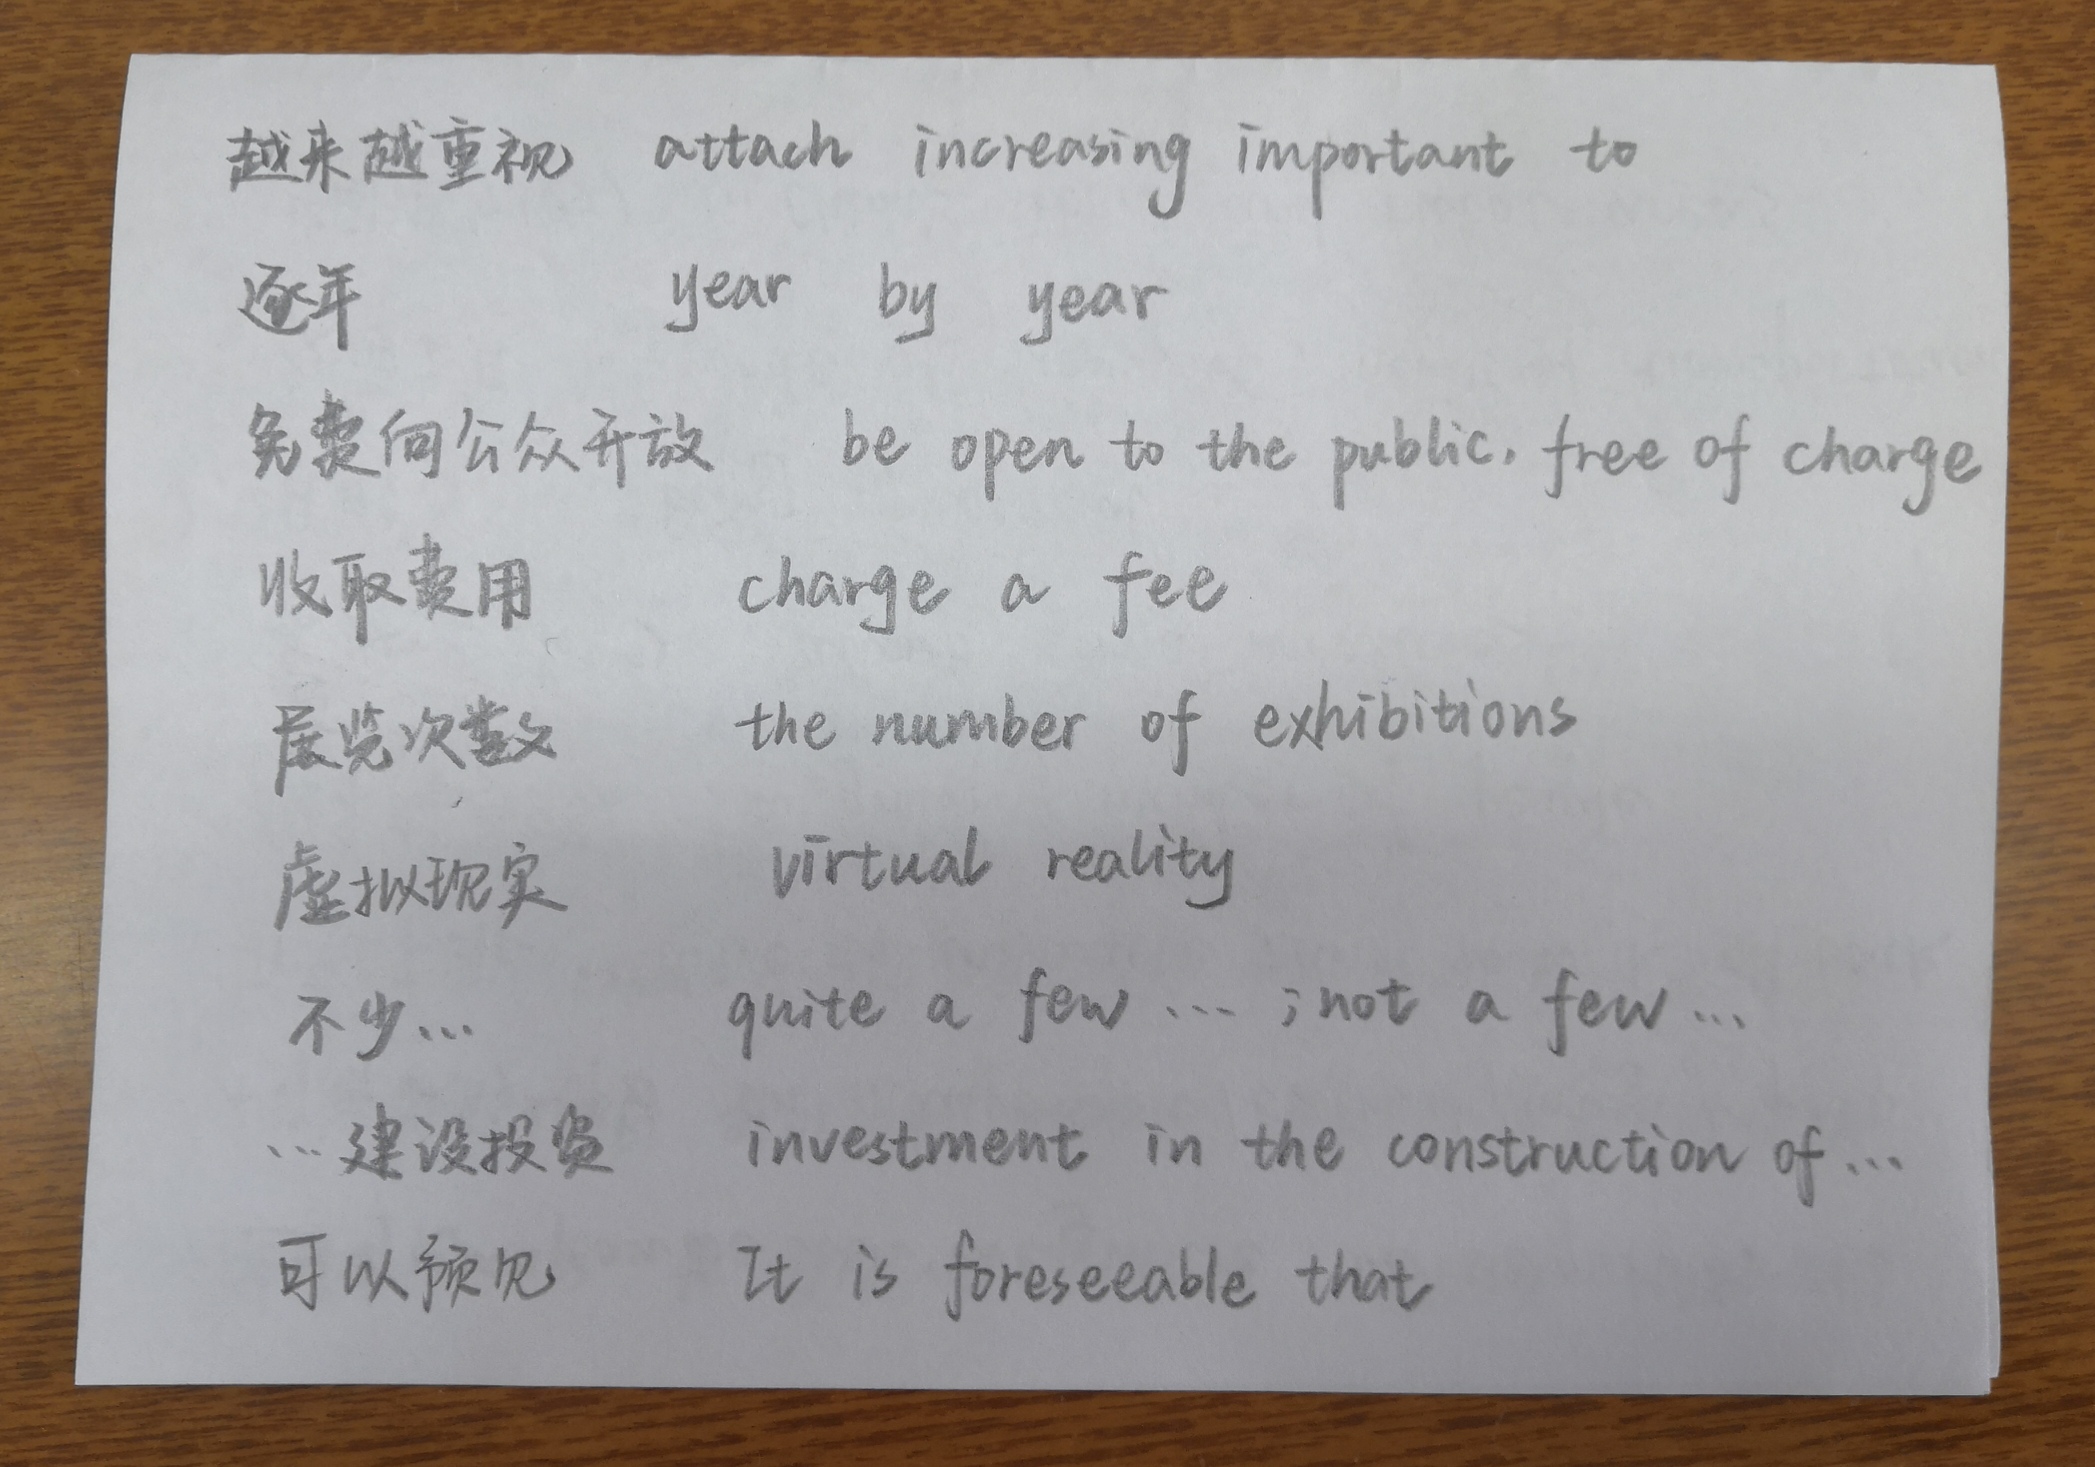 越来越重视 attach increasing important to
逐年 year by year
免费向公众开放 be open to the public, free of charge
收取费用 charge a fee
展览次数 the number of exhibitions
虚拟现实 virtual reality
不少... quite a few ... ; not a few ...
...建设投资 investment in the construction of ...
可以预见 It is foreseeable that